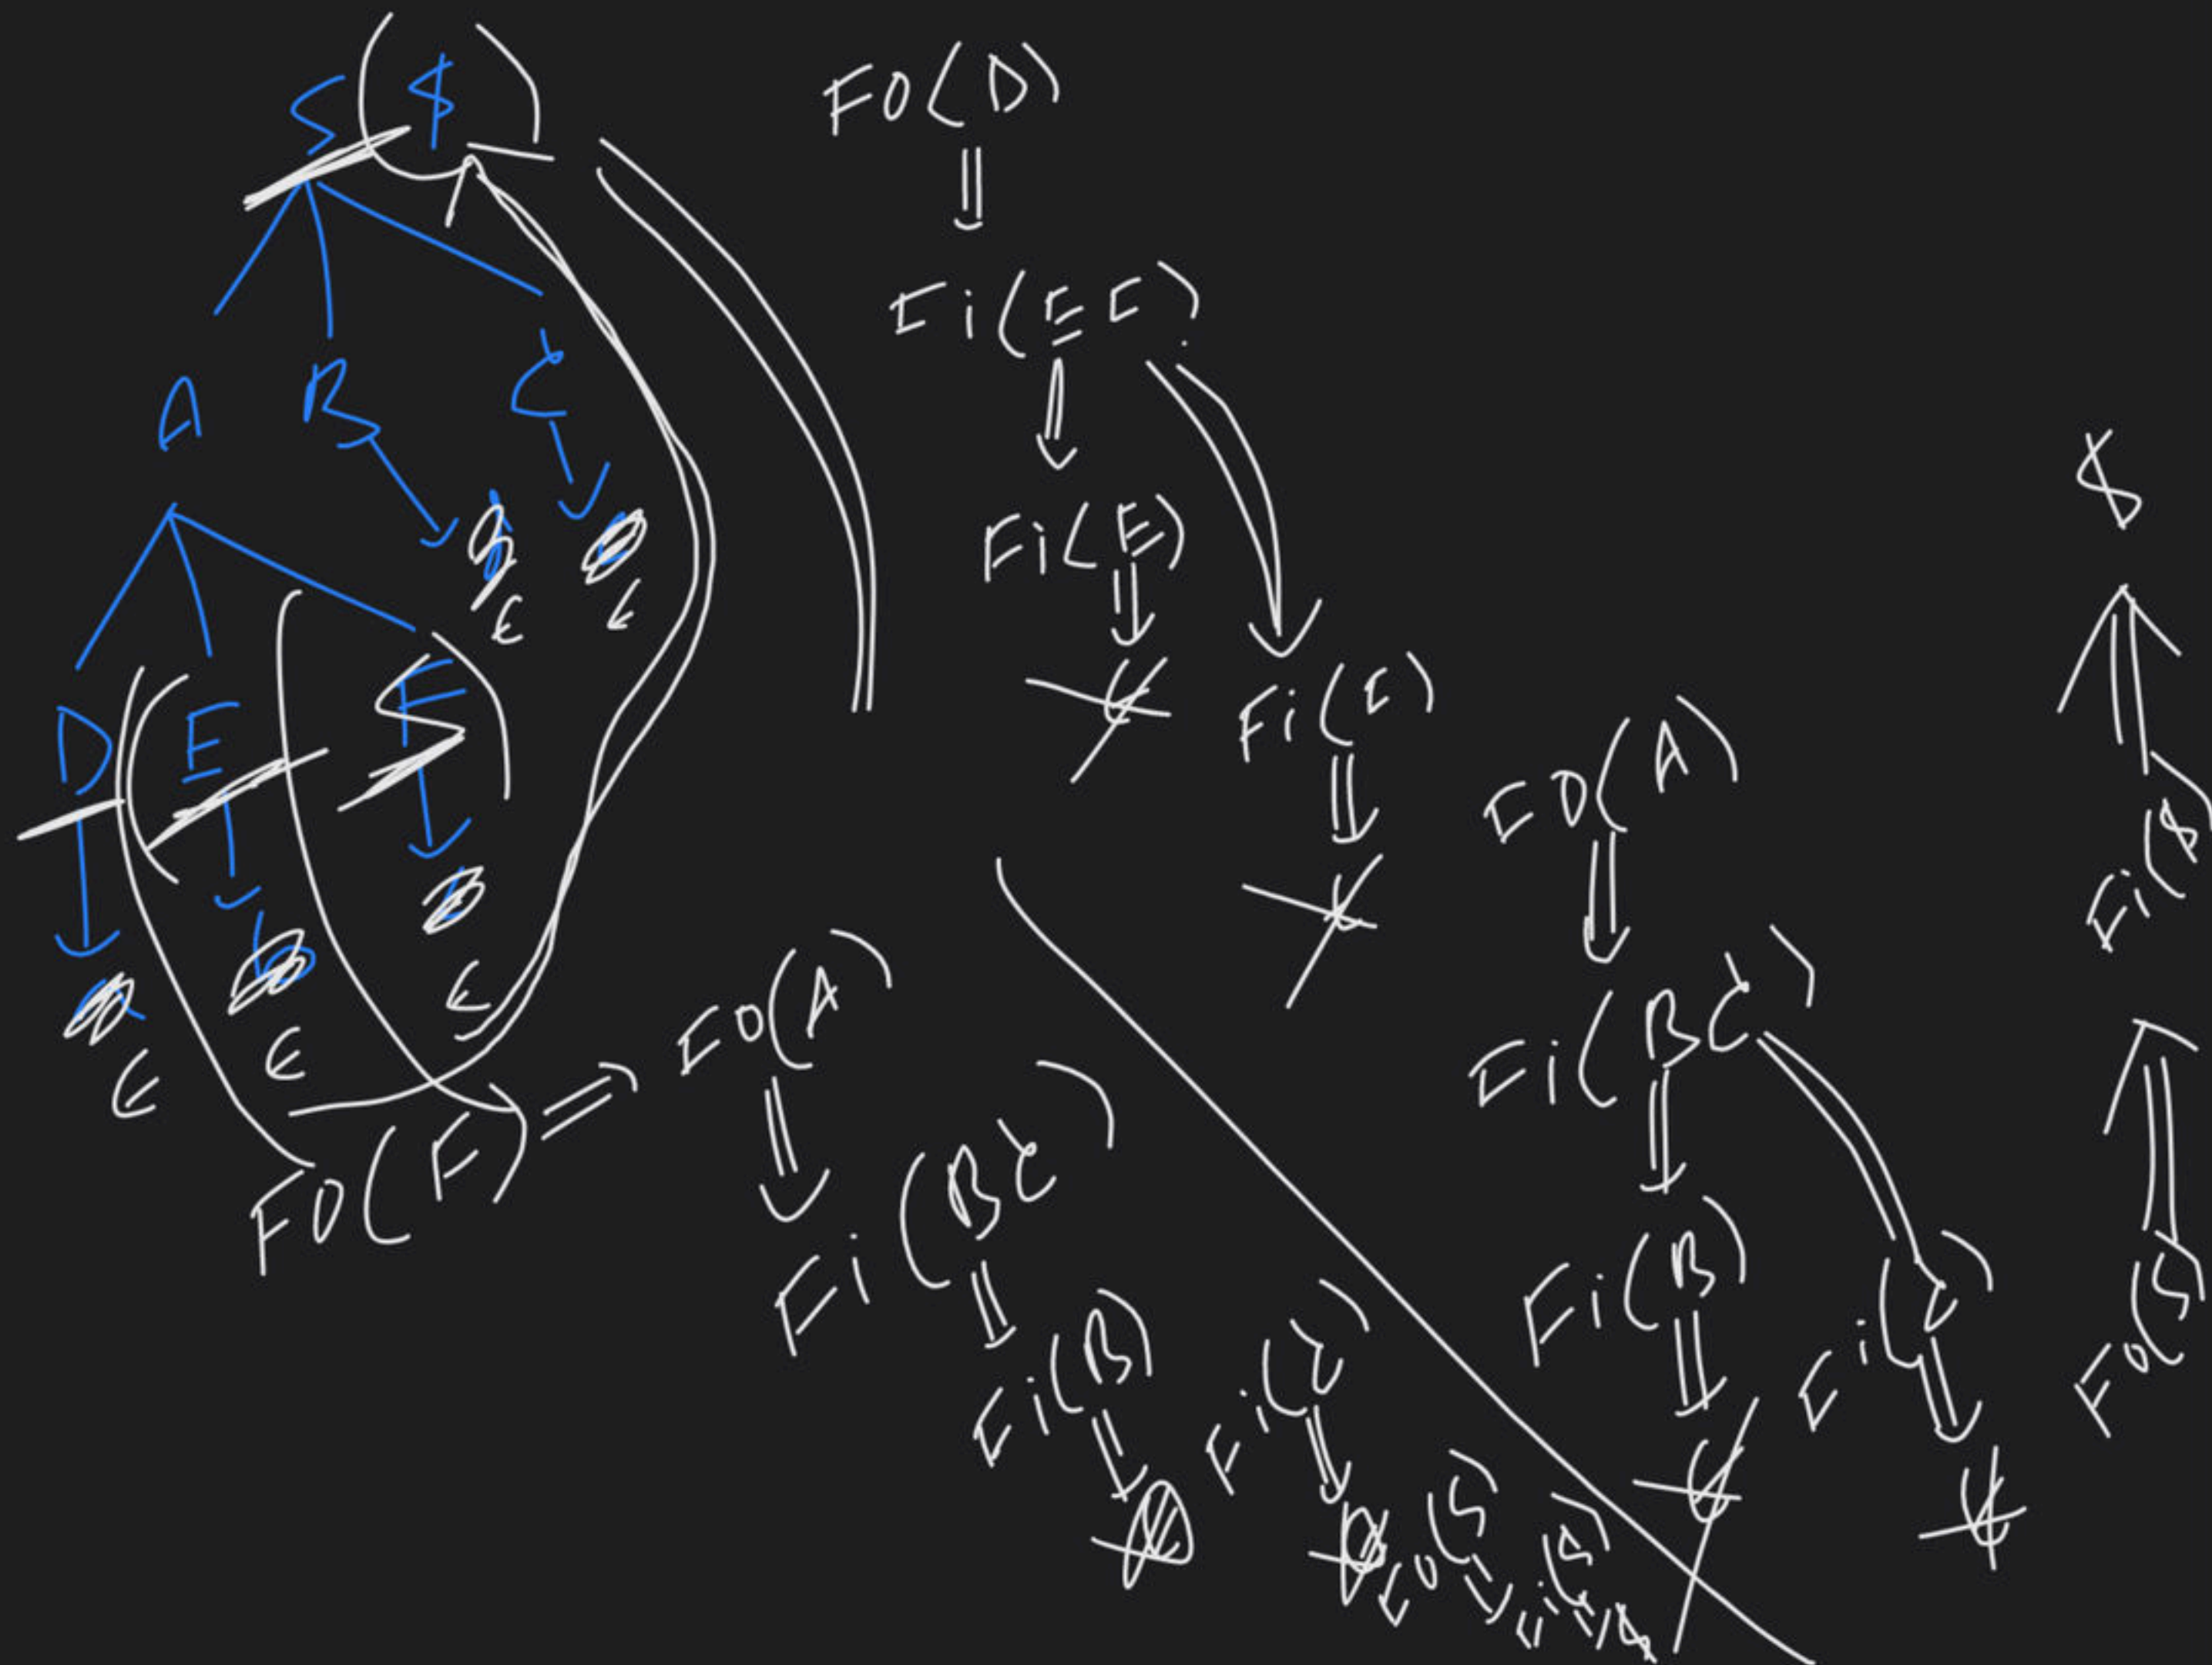 S ($)
A B C
ϵ ϵ
D E F S
ϵ ϵ ϵ
FO(F) ⇒ FO(A)
Fi(BC)
Fi(B) Fi(C)
FO(S) ⇒ Fi($) ⇒ $
FO(D)
Fi(EF)
Fi(E)
ϵ
Fi(F)
ϵ
FO(A)
Fi(BC)
Fi(B) Fi(C)
ϵ ϵ
FO(S)
Fi($)
$